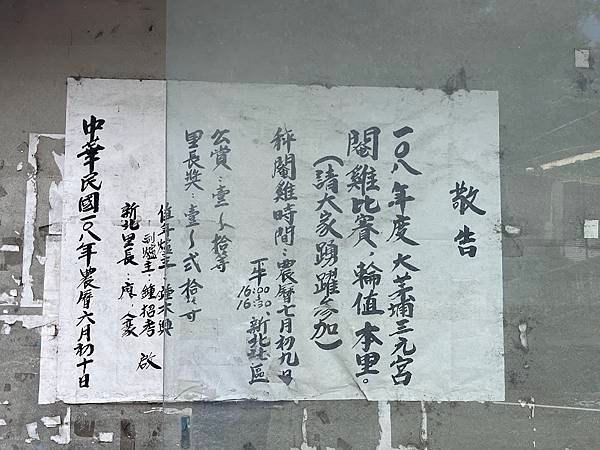 敬告
一〇八年度大茅埔三元宮
閹雞比賽，輪值本里。
(請大家踴躍參加)
秤閹雞時間：農曆七月初九日
下午16:00~16:30、新北社區
公賞：壹～拾等
里長獎：壹～弍拾等
值年爐主：鍾
副爐主：鍾招考
新北里長：
啟
中華民國一〇八年農曆六月初十日